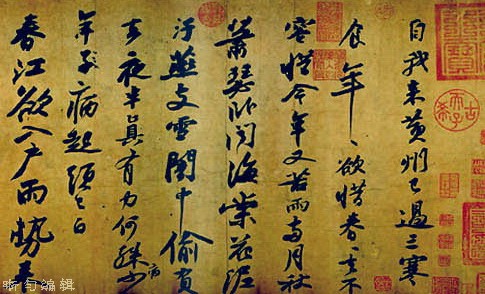 自我来黄州已過三寒
食年〻欲惜春〻去不
容惜今年又苦雨兩月秋
蕭瑟卧聞海棠花泥
汙燕支雪闇中偷負
去夜半真有力何殊病少
年子病起頭已白
春江欲入户雨勢来
古希天子
编辑